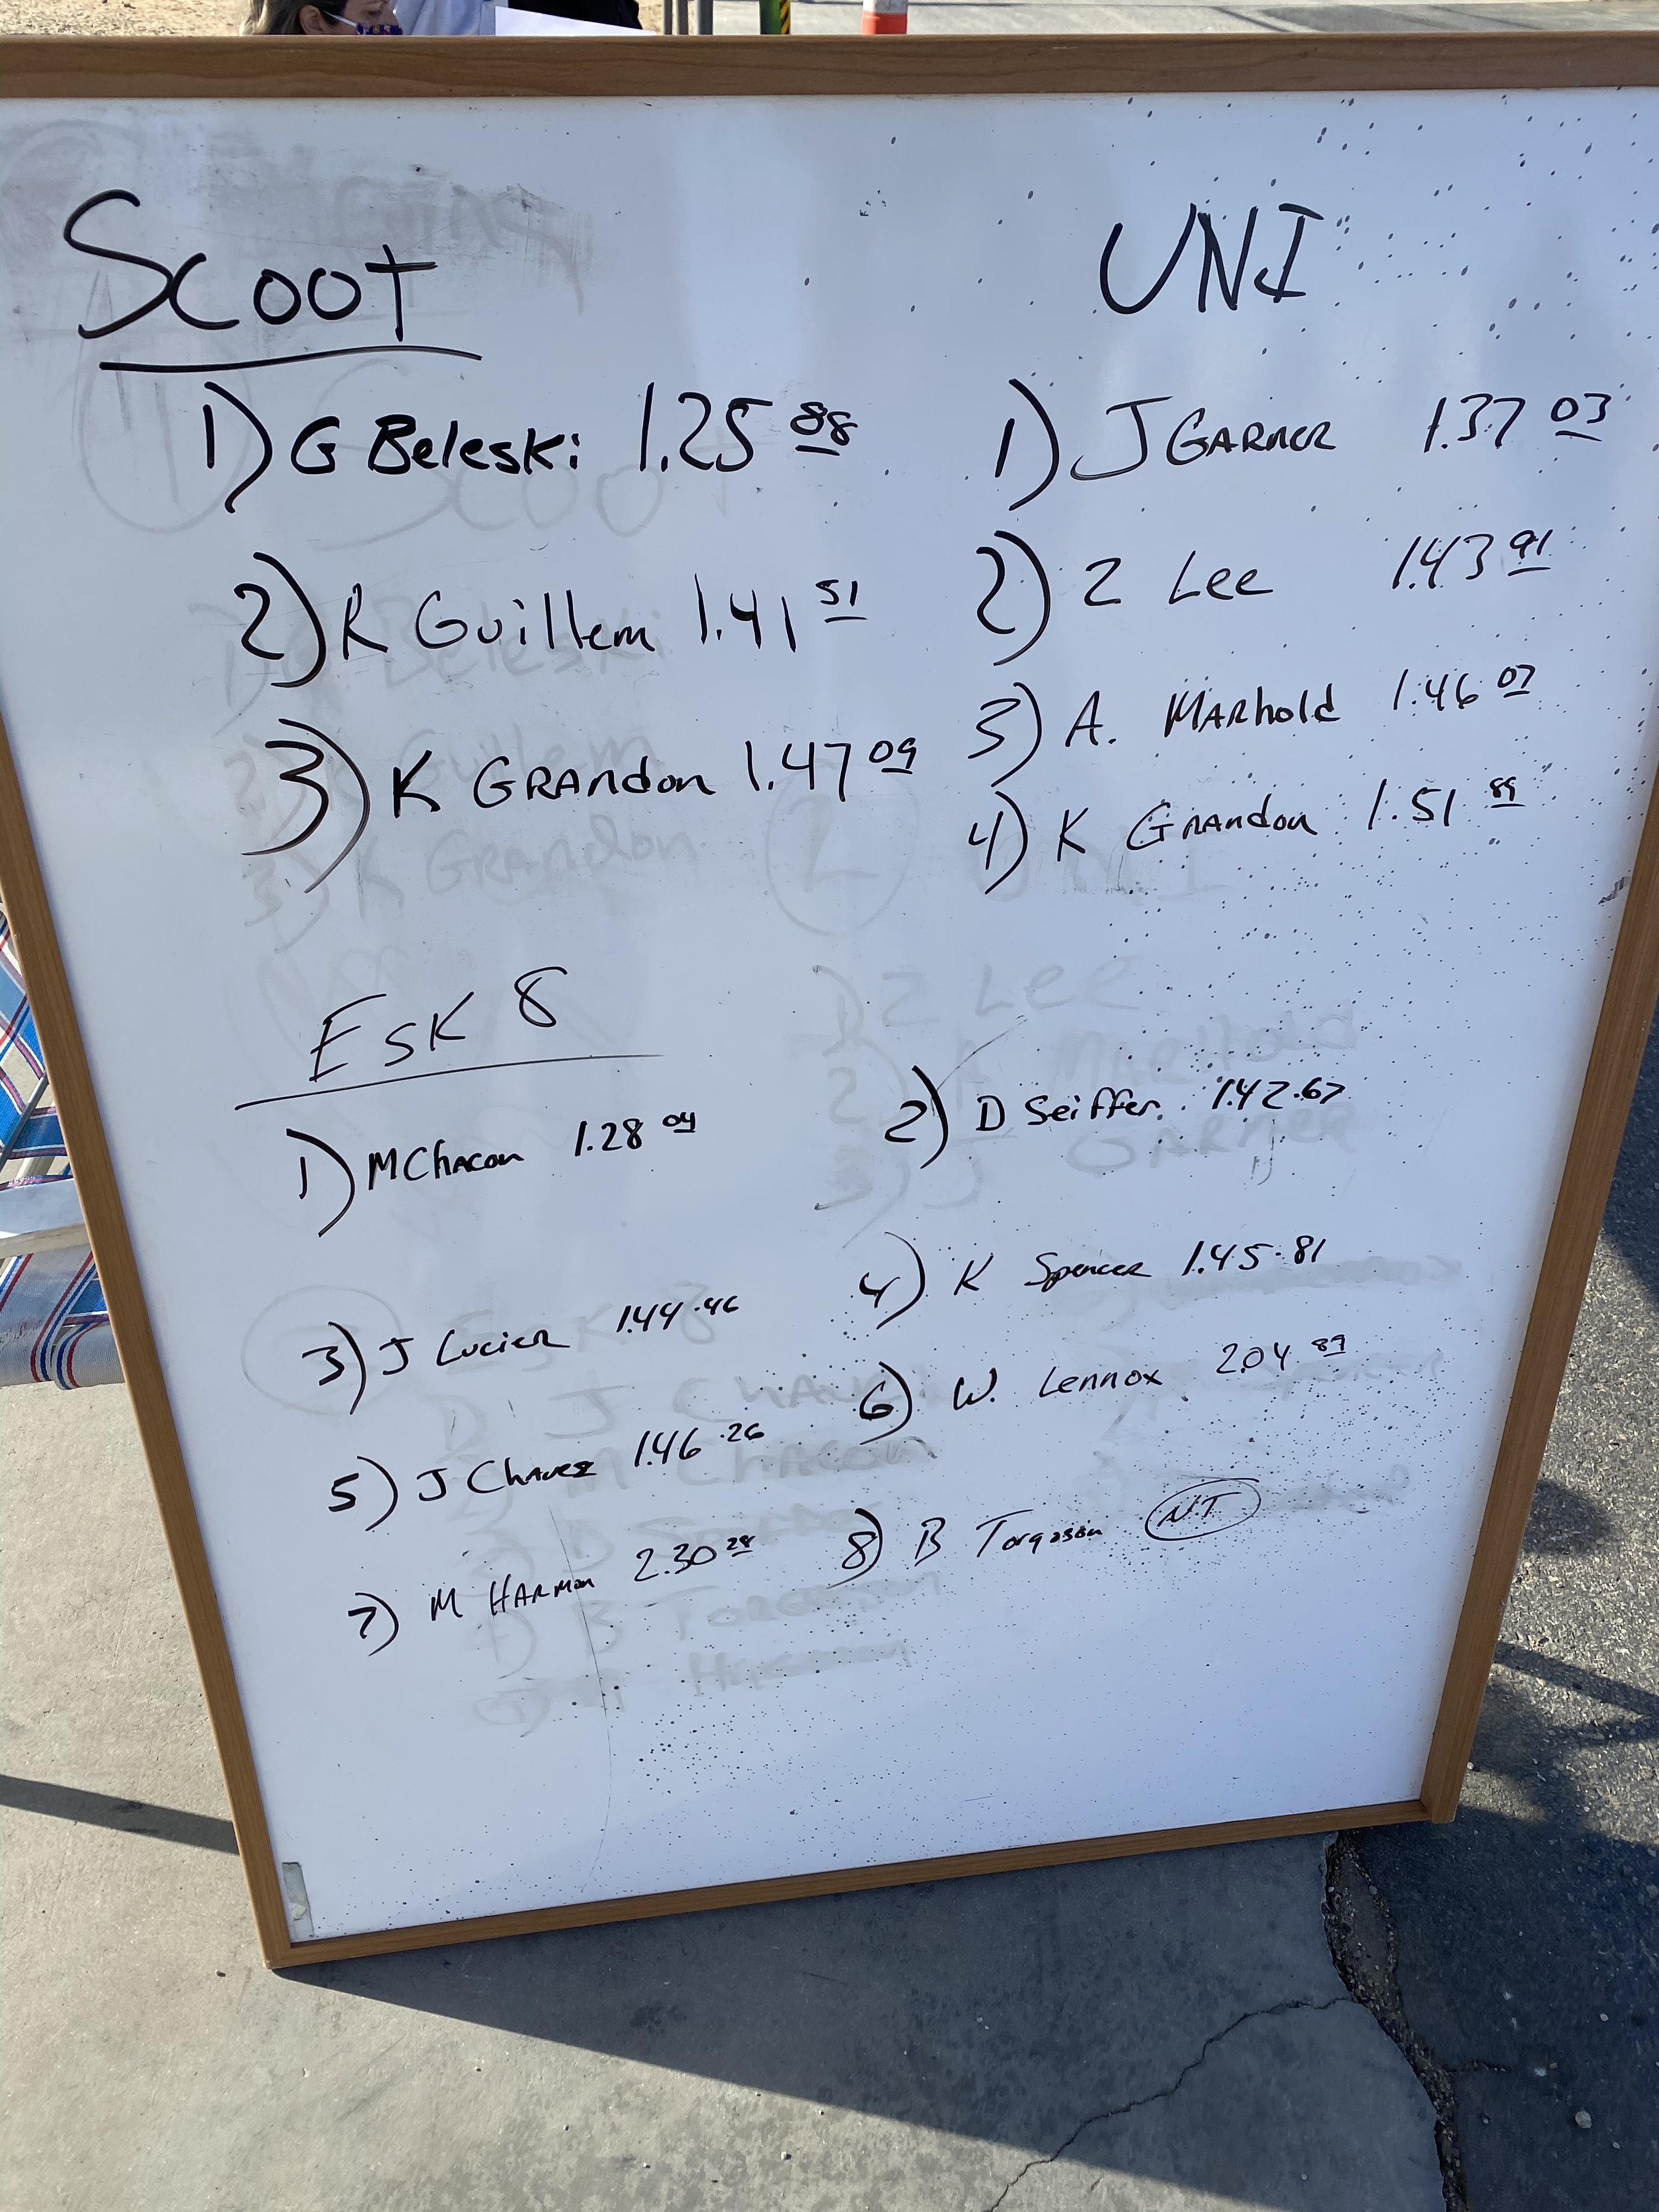 Scoot
1) G Beleski 1.25 88
2) K Guillem 1.41 51
3) K GRAndon 1.47 09
UNI
1) J GARNER 1.37 03
2) Z Lee 1.43 91
3) A. MARhold 1.46 07
4) K Grandon 1.51 89
Esk 8
1) M Chacon 1.28 04
2) D Seiffer. 1.42.67
3) J Lucier 1.44.46
4) K Spencer 1.45.81
5) J Chavez 1.46.26
6) W. Lennox 2.04 89
7) M HARMon 2.30 28
8) B Torgason N.T